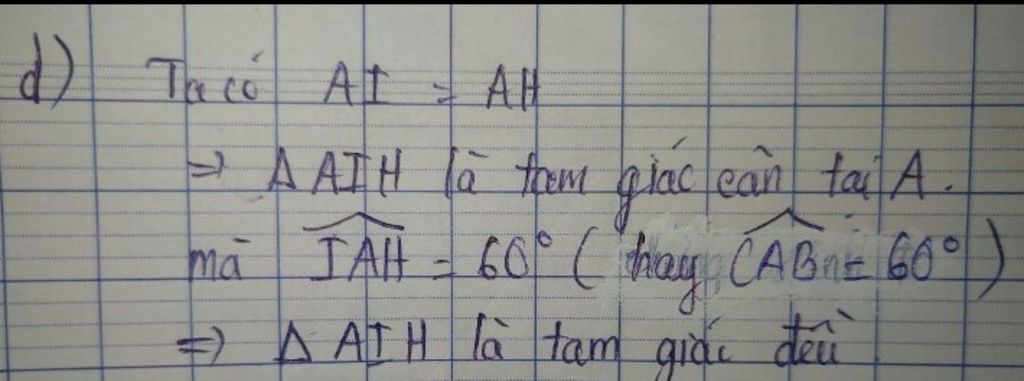 d) Ta có AI = AH
=> Δ AIH là tam giác cân tại A.
mà \widehat{IAH} = 60° ( hay \widehat{CAB} = 60° )
=> Δ AIH là tam giác đều